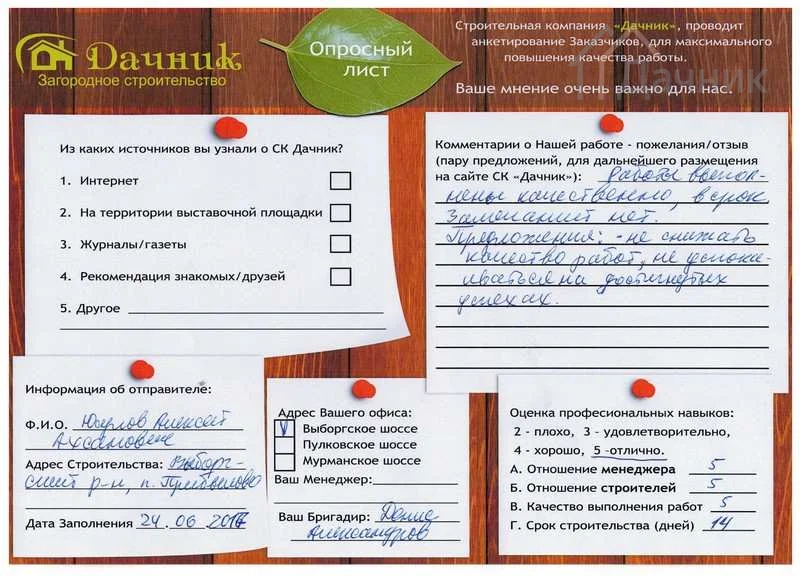 Дачник
Загородное строительство
Опросный
лист
Строительная компания «Дачник», проводит
анкетирование Заказчиков, для максимального
повышения качества работы.
Ваше мнение очень важно для нас.
Дачник
Из каких источников вы узнали о СК Дачник?
1. Интернет
2. На территории выставочной площадки
3. Журналы/газеты
4. Рекомендация знакомых/друзей
5. Другое
Комментарии о Нашей работе - пожелания/отзыв
(пару предложений, для дальнейшего размещения
на сайте СК «Дачник»): Работы выпол-
нены качественно, в срок
Замечаний нет.
Предложения: - не снижать
качество работ, не успока-
иваться на достигнутых
успехах.
Информация об отправителе:
Ф.И.О. Алексей
Адрес Строительства: Выборг-
ский р-н, п. Прибылово
Дата Заполнения 24.06.2016
Адрес Вашего офиса:
V Выборгское шоссе
Пулковское шоссе
Мурманское шоссе
Ваш Менеджер:
Ваш Бригадир: Денис
Александров
Оценка професиональных навыков:
2 - плохо, 3 - удовлетворительно,
4 - хорошо, 5 -отлично.
А. Отношение менеджера 5
Б. Отношение строителей 5
В. Качество выполнения работ 5
Г. Срок строительства (дней) 14